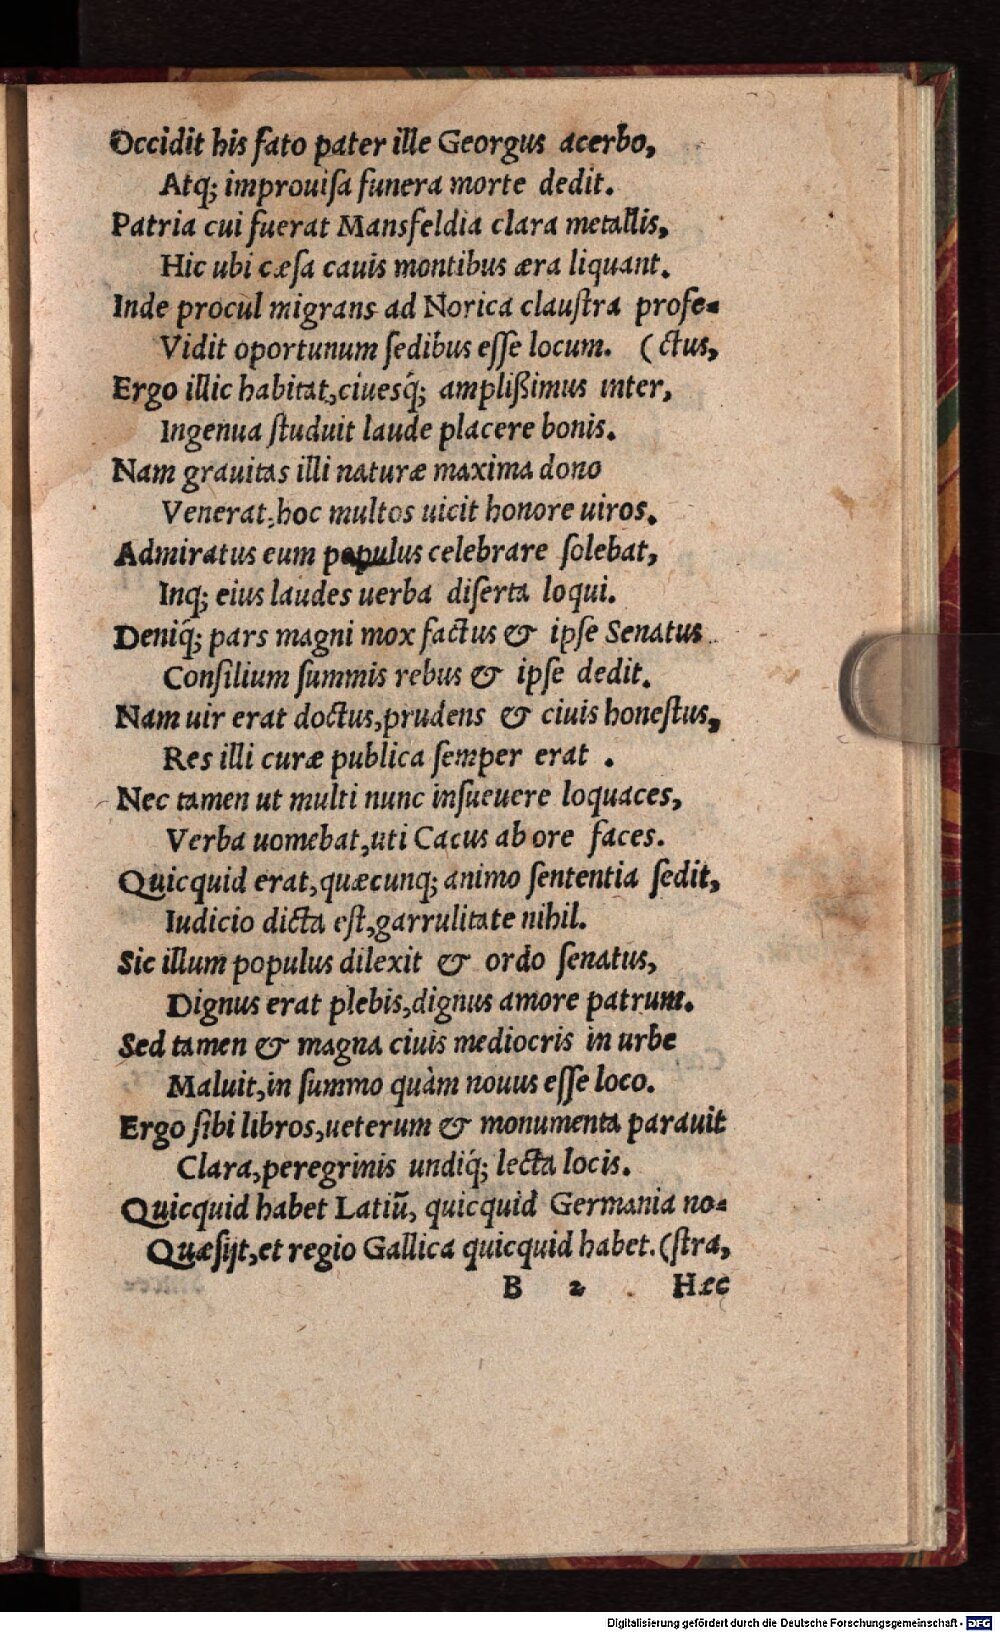 Occidit his fato pater ille Georgus acerbo,
Atq; improuiſa funera morte dedit.
Patria cui fuerat Mansfeldia clara metallis,
Hic ubi cæſa cauis montibus æra liquant.
Inde procul migrans ad Norica clauſtra profe-
Vidit oportunum ſedibus eſſe locum. (ctus,
Ergo illic habitat, ciuesq́; ampliſsimus inter,
Ingenua ſtuduit laude placere bonis.
Nam grauitas illi naturæ maxima dono
Venerat, hoc multos uicit honore uiros.
Admiratus eum populus celebrare ſolebat,
Inq; eius laudes uerba diſerta loqui.
Deniq́; pars magni mox factus & ipſe Senatus
Conſilium ſummis rebus & ipſe dedit.
Nam uir erat doctus, prudens & ciuis honeſtus,
Res illi curæ publica ſemper erat .
Nec tamen ut multi nunc inſueuere loquaces,
Verba uomebat, uti Cacus ab ore faces.
Quicquid erat, quæcunq; animo ſententia ſedit,
Iudicio dicta eſt, garrulitate nihil.
Sic illum populus dilexit & ordo ſenatus,
Dignus erat plebis, dignus amore patrum.
Sed tamen & magna ciuis mediocris in urbe
Maluit, in ſummo quàm nouus eſſe loco.
Ergo ſibi libros, ueterum & monumenta parauit
Clara, peregrinis undiq́; lecta locis.
Quicquid habet Latiũ, quicquid Germania no-
Quæſijt, et regio Gallica quicquid habet. (ſtra,
B 2 Hæc
Digitalisierung gefördert durch die Deutsche Forschungsgemeinschaft - DFG